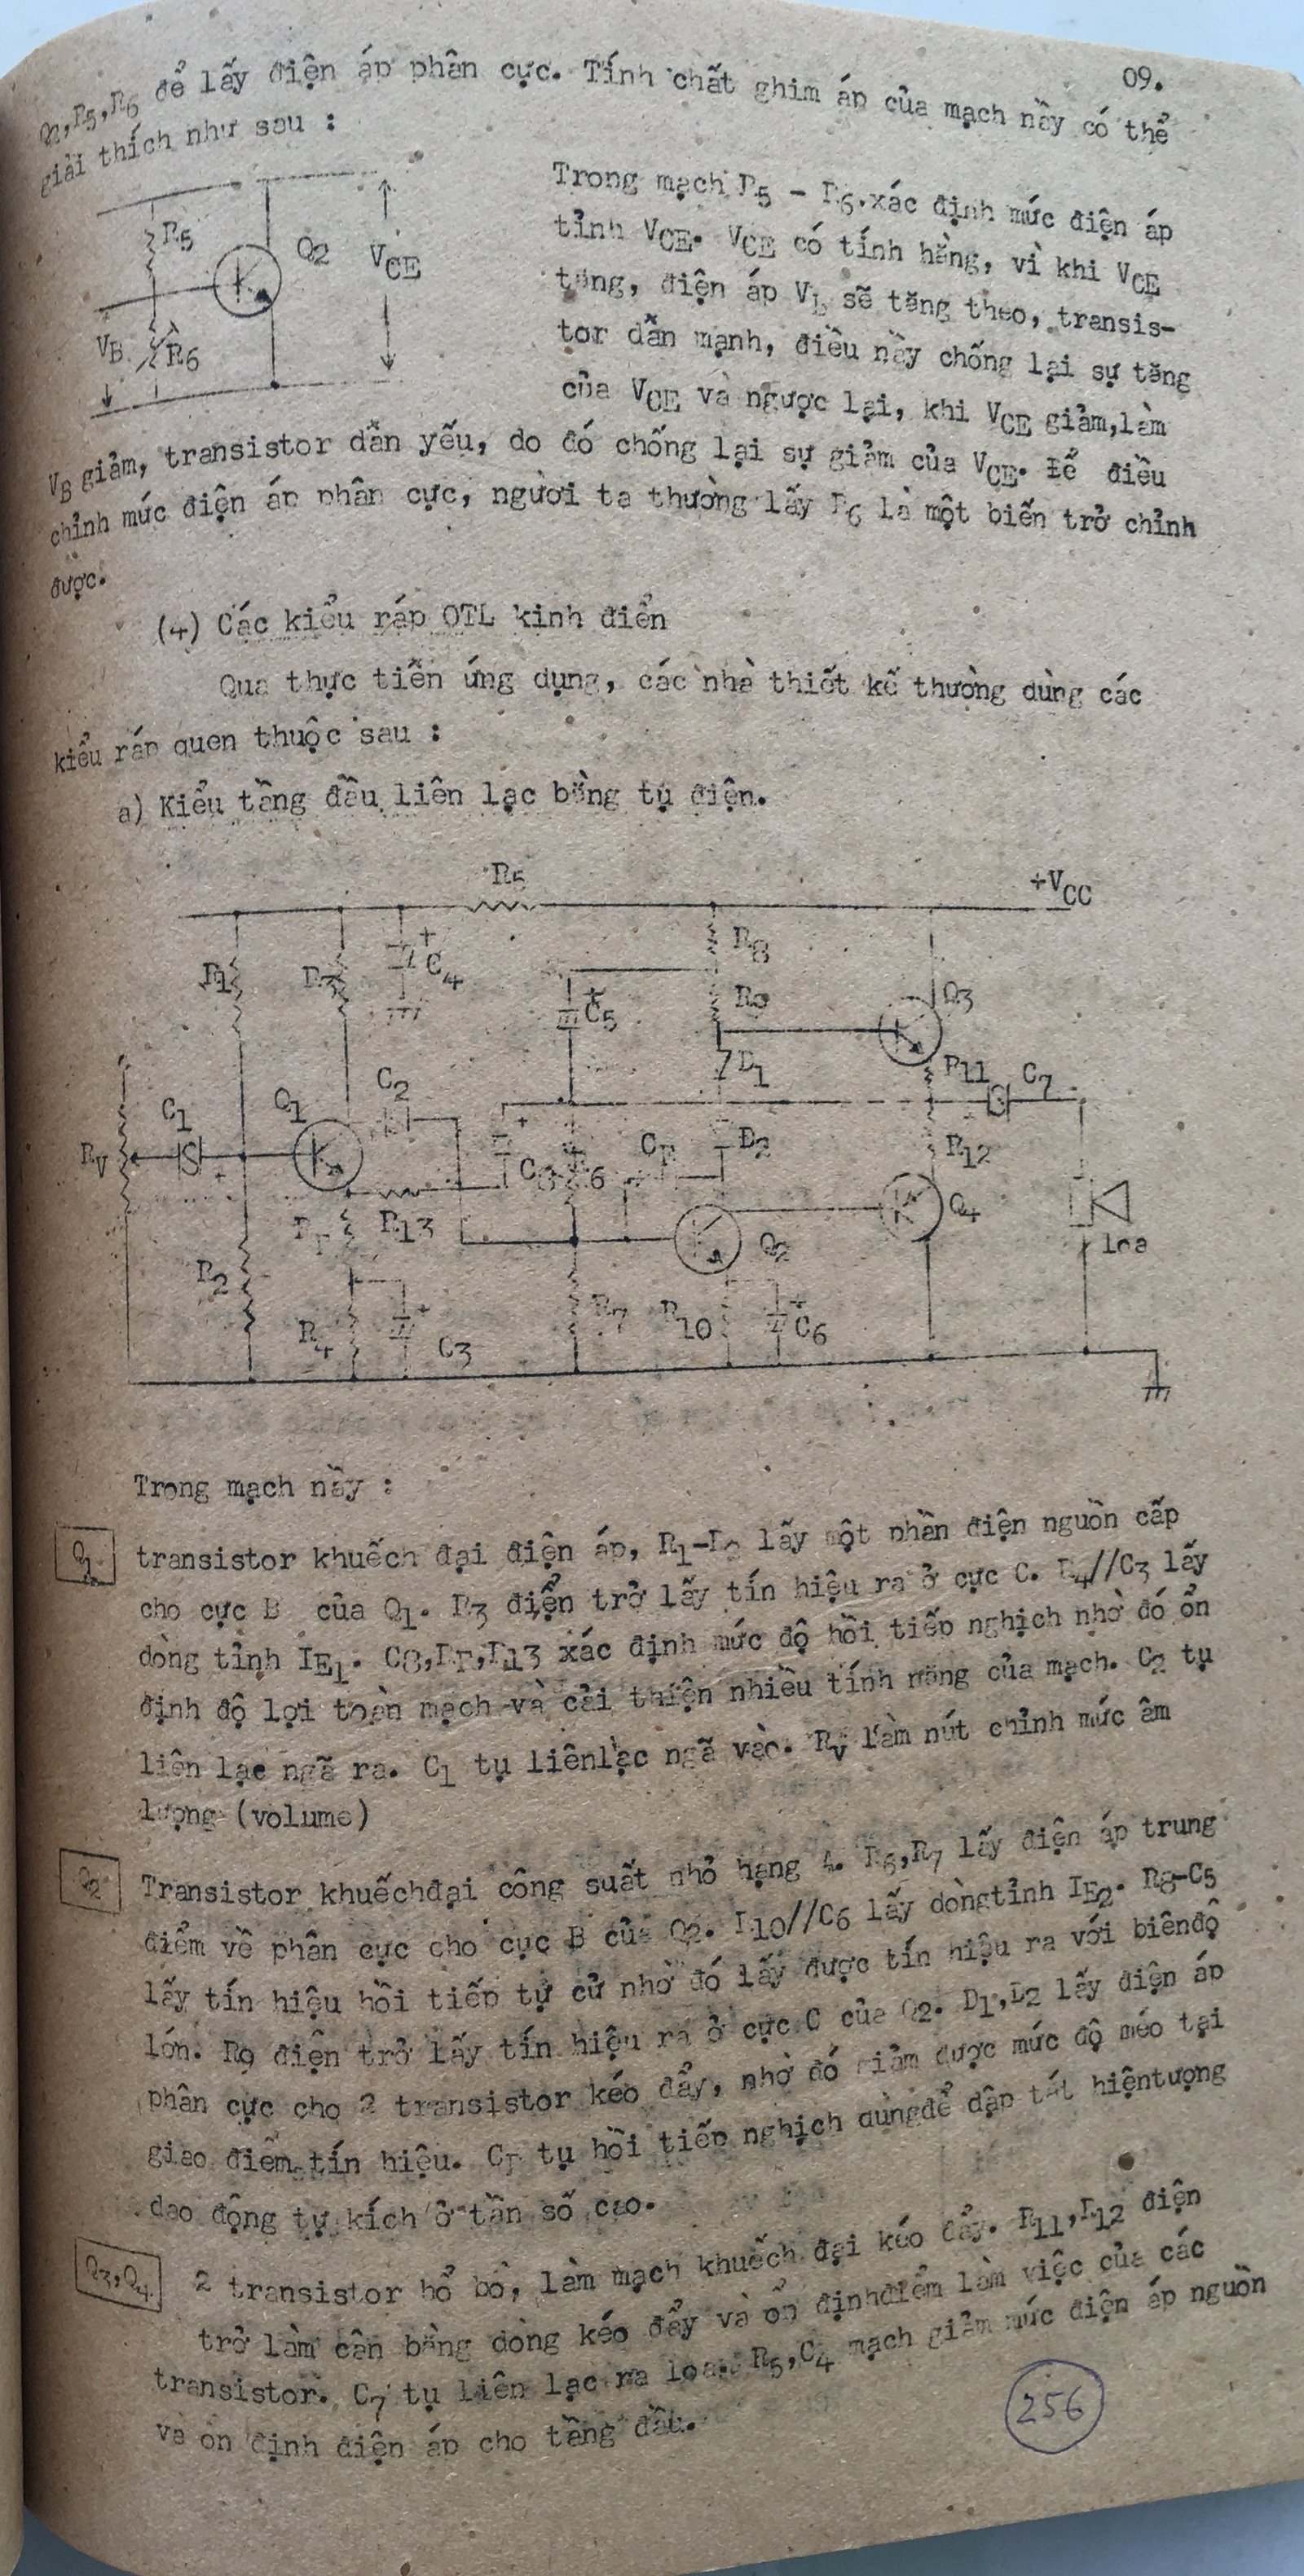 09.
Q2,R5,R6 để lấy điện áp phân cực. Tính chất ghim áp của mạch nầy có thể
giải thích như sau :
R5
Q2
VCE
VB
R6
Trong mạch R5 - R6.xác định mức điện áp
tỉnh VCE. VCE có tính hằng, vì khi VCE
tăng, điện áp Vb sẽ tăng theo, transis-
tor dẫn mạnh, điều nầy chống lại sự tăng
của VCE và ngược lại, khi VCE giảm,làm
VB giảm, transistor dẫn yếu, do đó chống lại sự giảm của VCE. Để điều
chỉnh mức điện áp phân cực, người ta thường lấy R6 là một biến trở chỉnh
được.
(4) Các kiểu ráp OTL kinh điển
Qua thực tiễn ứng dụng, các nhà thiết kế thường dùng các
kiểu ráp quen thuộc sau :
a) Kiểu tầng đầu liên lạc bằng tụ điện.
R5
+VCC
R1
R3
C4
R8
C5
R9
Q3
D1
R11
C7
C2
C1
Q1
RV
C8
R6
CF
D2
R12
RF
R13
Q2
Q4
loa
R2
R4
C3
R7
R10
C6
Trong mạch nầy :
Q1
transistor khuếch đại điện áp, R1-R2 lấy một phần điện nguồn cấp
cho cực B của Q1. R3 điển trở lấy tín hiệu ra ở cực C. R4//C3 lấy
dòng tỉnh IE1. C8,RF,R13 xác định mức độ hồi tiếp nghịch nhờ đó ổn
định độ lợi toàn mạch và cải thiện nhiều tính năng của mạch. C2 tụ
liên lạc ngã ra. C1 tụ liênlạc ngã vào. RV làm nút chỉnh mức âm
lượng (volume)
Q2
Transistor khuếchđại công suất nhỏ hạng A. R6,R7 lấy điện áp trung
điểm về phân cực cho cực B của Q2. R10//C6 lấy dòngtỉnh IE2. R8-C5
lấy tín hiệu hồi tiếp tự cử nhờ đó lấy được tín hiệu ra với biênđộ
lớn. R9 điện trở lấy tín hiệu ra ở cực C của Q2. D1,D2 lấy điện áp
phân cực cho 2 transistor kéo đẩy, nhờ đó giảm được mức độ méo tại
giao điểm tín hiệu. CF tụ hồi tiếp nghịch dùngđể dập tắt hiệntượng
dao động tự kích ở tần số cao.
Q3,Q4
2 transistor hổ bổ, làm mạch khuếch đại kéo đẩy. R11,R12 điện
trở làm cân bằng dòng kéo đẩy và ổn địnhđiểm làm việc của các
transistor. C7 tụ liên lạc ra loa. R5,C4 mạch giảm mức điện áp nguồn
và ổn định điện áp cho tầng đầu.
256